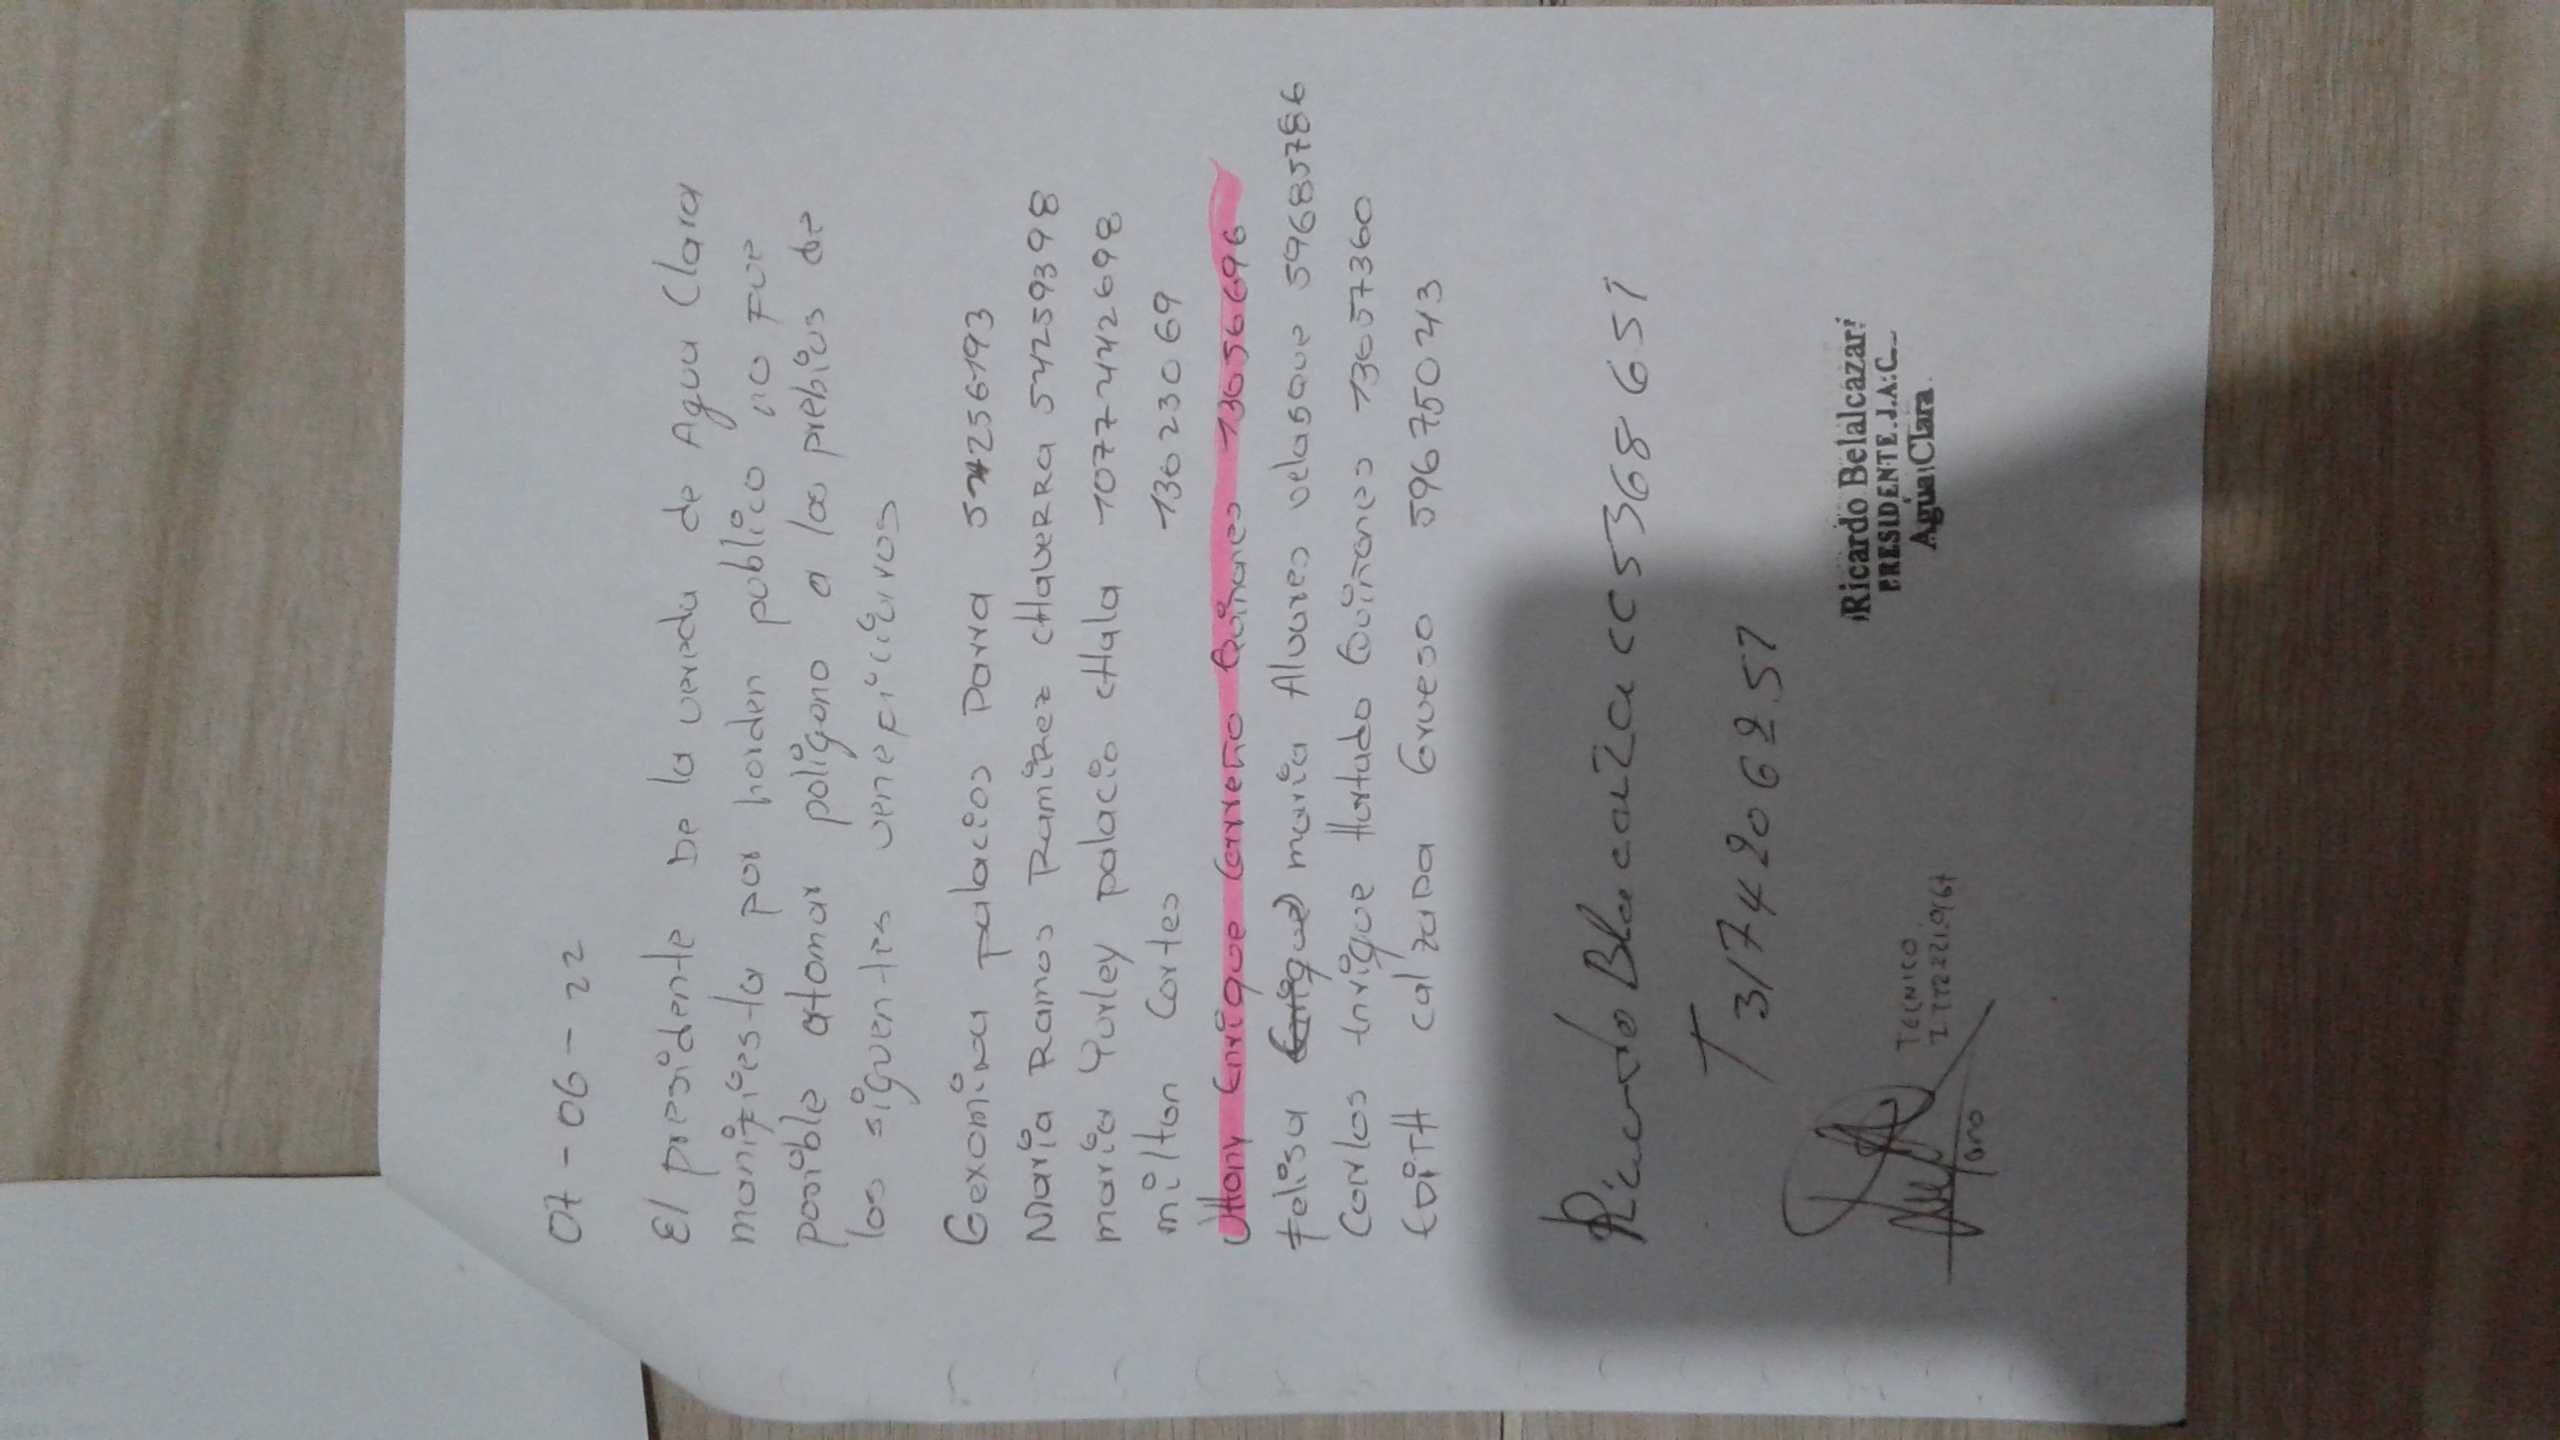 07-06-22
El presidente De la vereda de Agua Clara
manifiesta por horden publico no Fue
posible atomar poligono a los prebius de
los siguentes veneficiarios
Gexomina palacios Parra 54256193
Maria Ramos Ramirez cHaverra 54259398
maria Yurley palacio cHala 1077442698
milton Cortes 13623069
JHony Enrique Carreño Quiñones 13656696
Felisa maria Alvares velasque 59685786
Carlos Enrique Hurtado Quiñones 13657360
EDiTH calzapa Grueso 59675043
Ricardo Blacaza cc 5368651
T 3174206257
Ricardo Belalcazar
PRESIDENTE.J.A.C.
Agua Clara
TECNICO